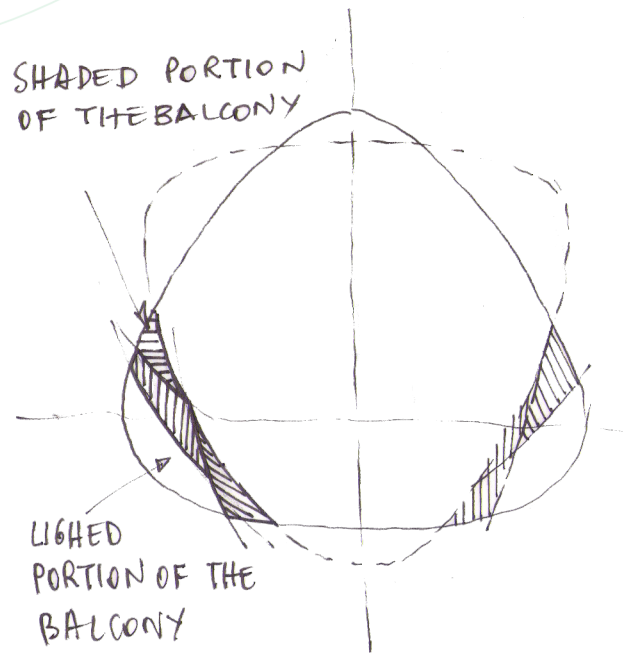 SHADED PORTION
OF THE BALCONY
LIGHED
PORTION OF THE
BALCONY